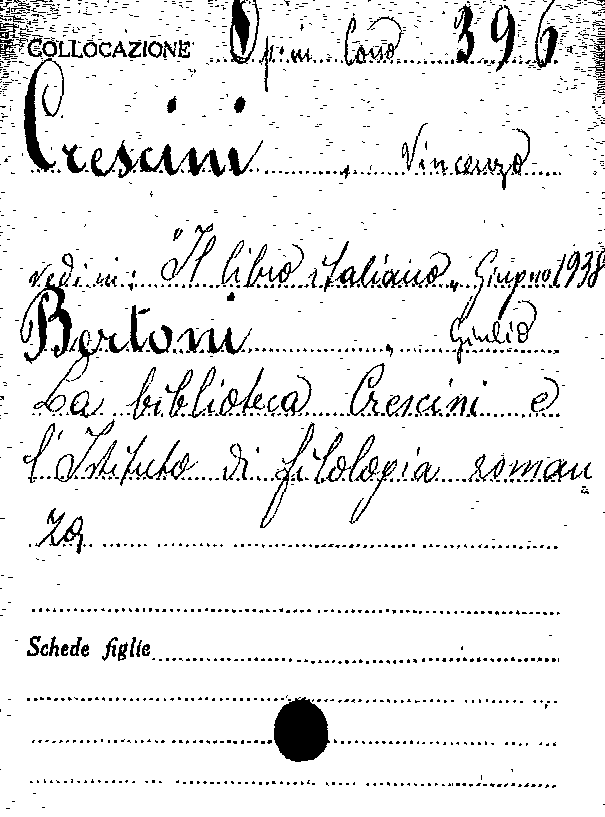 COLLOCAZIONE Op. in Cons 396
Crescini, Vincenzo
vedi in: "Il libro italiano" Giugno 1938
Bertoni, Giulio
La biblioteca Crescini e
l'Istituto di filologia roman
za
Schede figlie